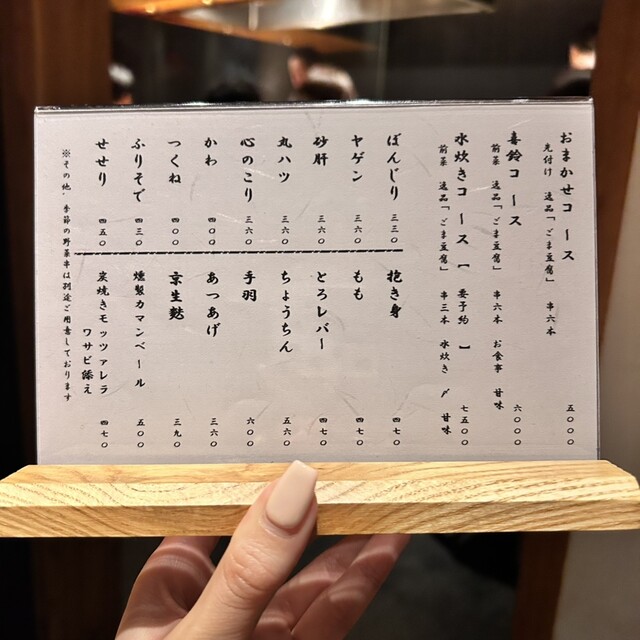 おまかせコース
先付け 逸品「ごま豆腐」 串六本 五〇〇〇
喜鈴コース
前菜 逸品「ごま豆腐」 串六本 お食事 甘味 六〇〇〇
水炊きコース [ 要予約 ]
前菜 逸品「ごま豆腐」 串三本 水炊き 〆 甘味 七五〇〇
ぼんじり 三三〇
ヤゲン 三六〇
砂肝 三六〇
丸ハツ 三六〇
心のこり 三六〇
かわ 四〇〇
つくね 四〇〇
ふりそで 四三〇
せせり 四五〇
抱き身 四七〇
もも 四七〇
とろレバー 四七〇
ちょうちん 五六〇
手羽 六〇〇
あつあげ 三六〇
京生麩 三九〇
燻製カマンベール 五〇〇
炭焼きモッツァレラ
ワサビ添え 四七〇
※その他、季節の野菜串は別途ご用意しております